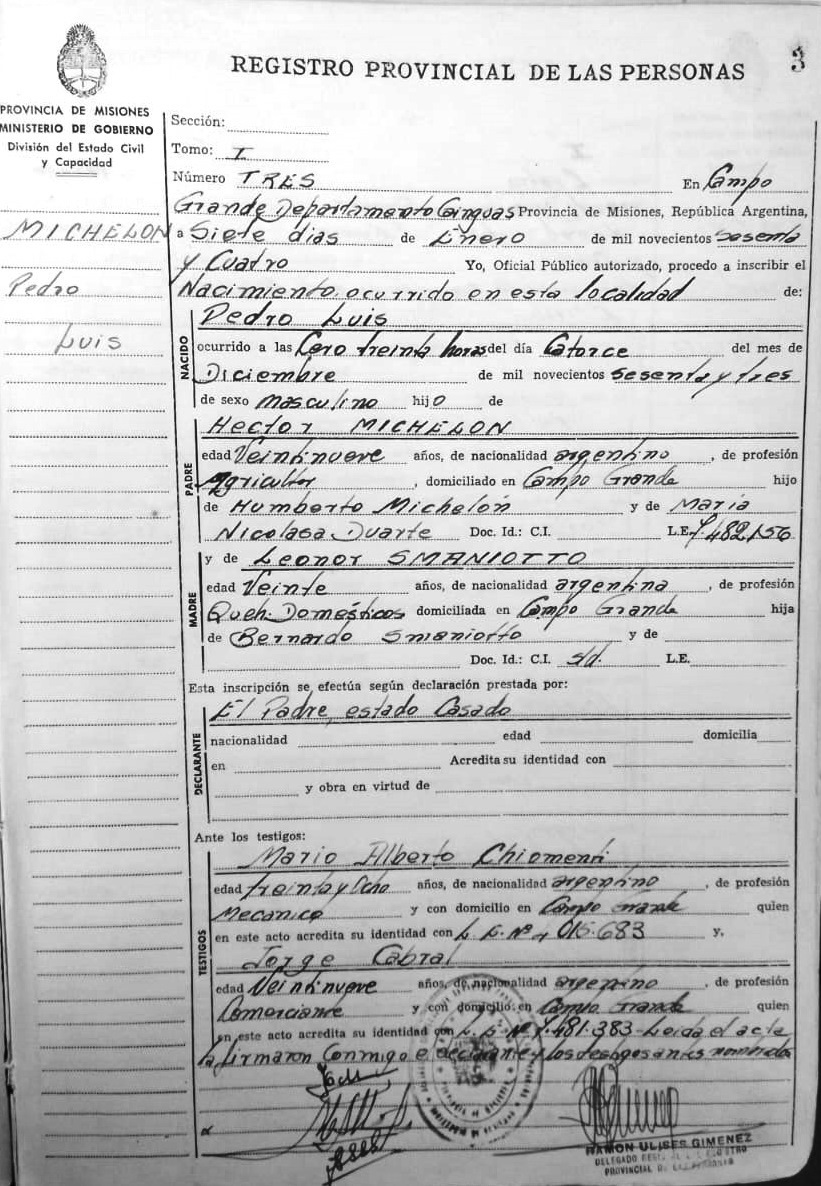 3
REGISTRO PROVINCIAL DE LAS PERSONAS
PROVINCIA DE MISIONES
MINISTERIO DE GOBIERNO
División del Estado Civil
y Capacidad
MICHELON
Pedro
Luis
Sección:
Tomo: I
Número TRES En Campo
Grande Departamento Cainguas Provincia de Misiones, República Argentina,
a Siete dias de Enero de mil novecientos sesenta
y Cuatro Yo, Oficial Público autorizado, procedo a inscribir el
Nacimiento ocurrido en esta localidad de:
NACIDO
Pedro Luis
ocurrido a las Cero treinta horas del día Catorce del mes de
Diciembre de mil novecientos sesenta y tres
de sexo masculino hijo de
PADRE
Hector MICHELON
edad Veintinueve años, de nacionalidad argentino, de profesión
Agricultor, domiciliado en Campo Grande hijo
de Humberto Michelón y de Maria
Nicolasa Duarte Doc. Id.: C.I. L.E. 7.482.156
MADRE
y de Leonor SMANIOTTO
edad Veinte años, de nacionalidad argentina, de profesión
Queh. Domésticos domiciliada en Campo Grande hija
de Bernardo Smaniotto y de
Doc. Id.: C.I. s/d. L.E.
Esta inscripción se efectúa según declaración prestada por:
DECLARANTE
El Padre, estado Casado
nacionalidad edad domicilia
en Acredita su identidad con
y obra en virtud de
Ante los testigos:
TESTIGOS
Mario Alberto Chiomenti
edad treinta y Ocho años, de nacionalidad argentino, de profesión
Mecanico y con domicilio en Campo Grande quien
en este acto acredita su identidad con L. E. Nº 4 015.683 y,
Jorge Cabral
edad Veintinueve años, de nacionalidad argentino, de profesión
Comerciante y con domicilio en Campo Grande quien
en este acto acredita su identidad con L. E. Nº 7.481.383 - Leida el acta
la firmaron Conmigo el declarante y los testigos antes nombrados
RAMON ULISES GIMENEZ
DELEGADO REGISTRO
PROVINCIAL DE LAS PERSONAS